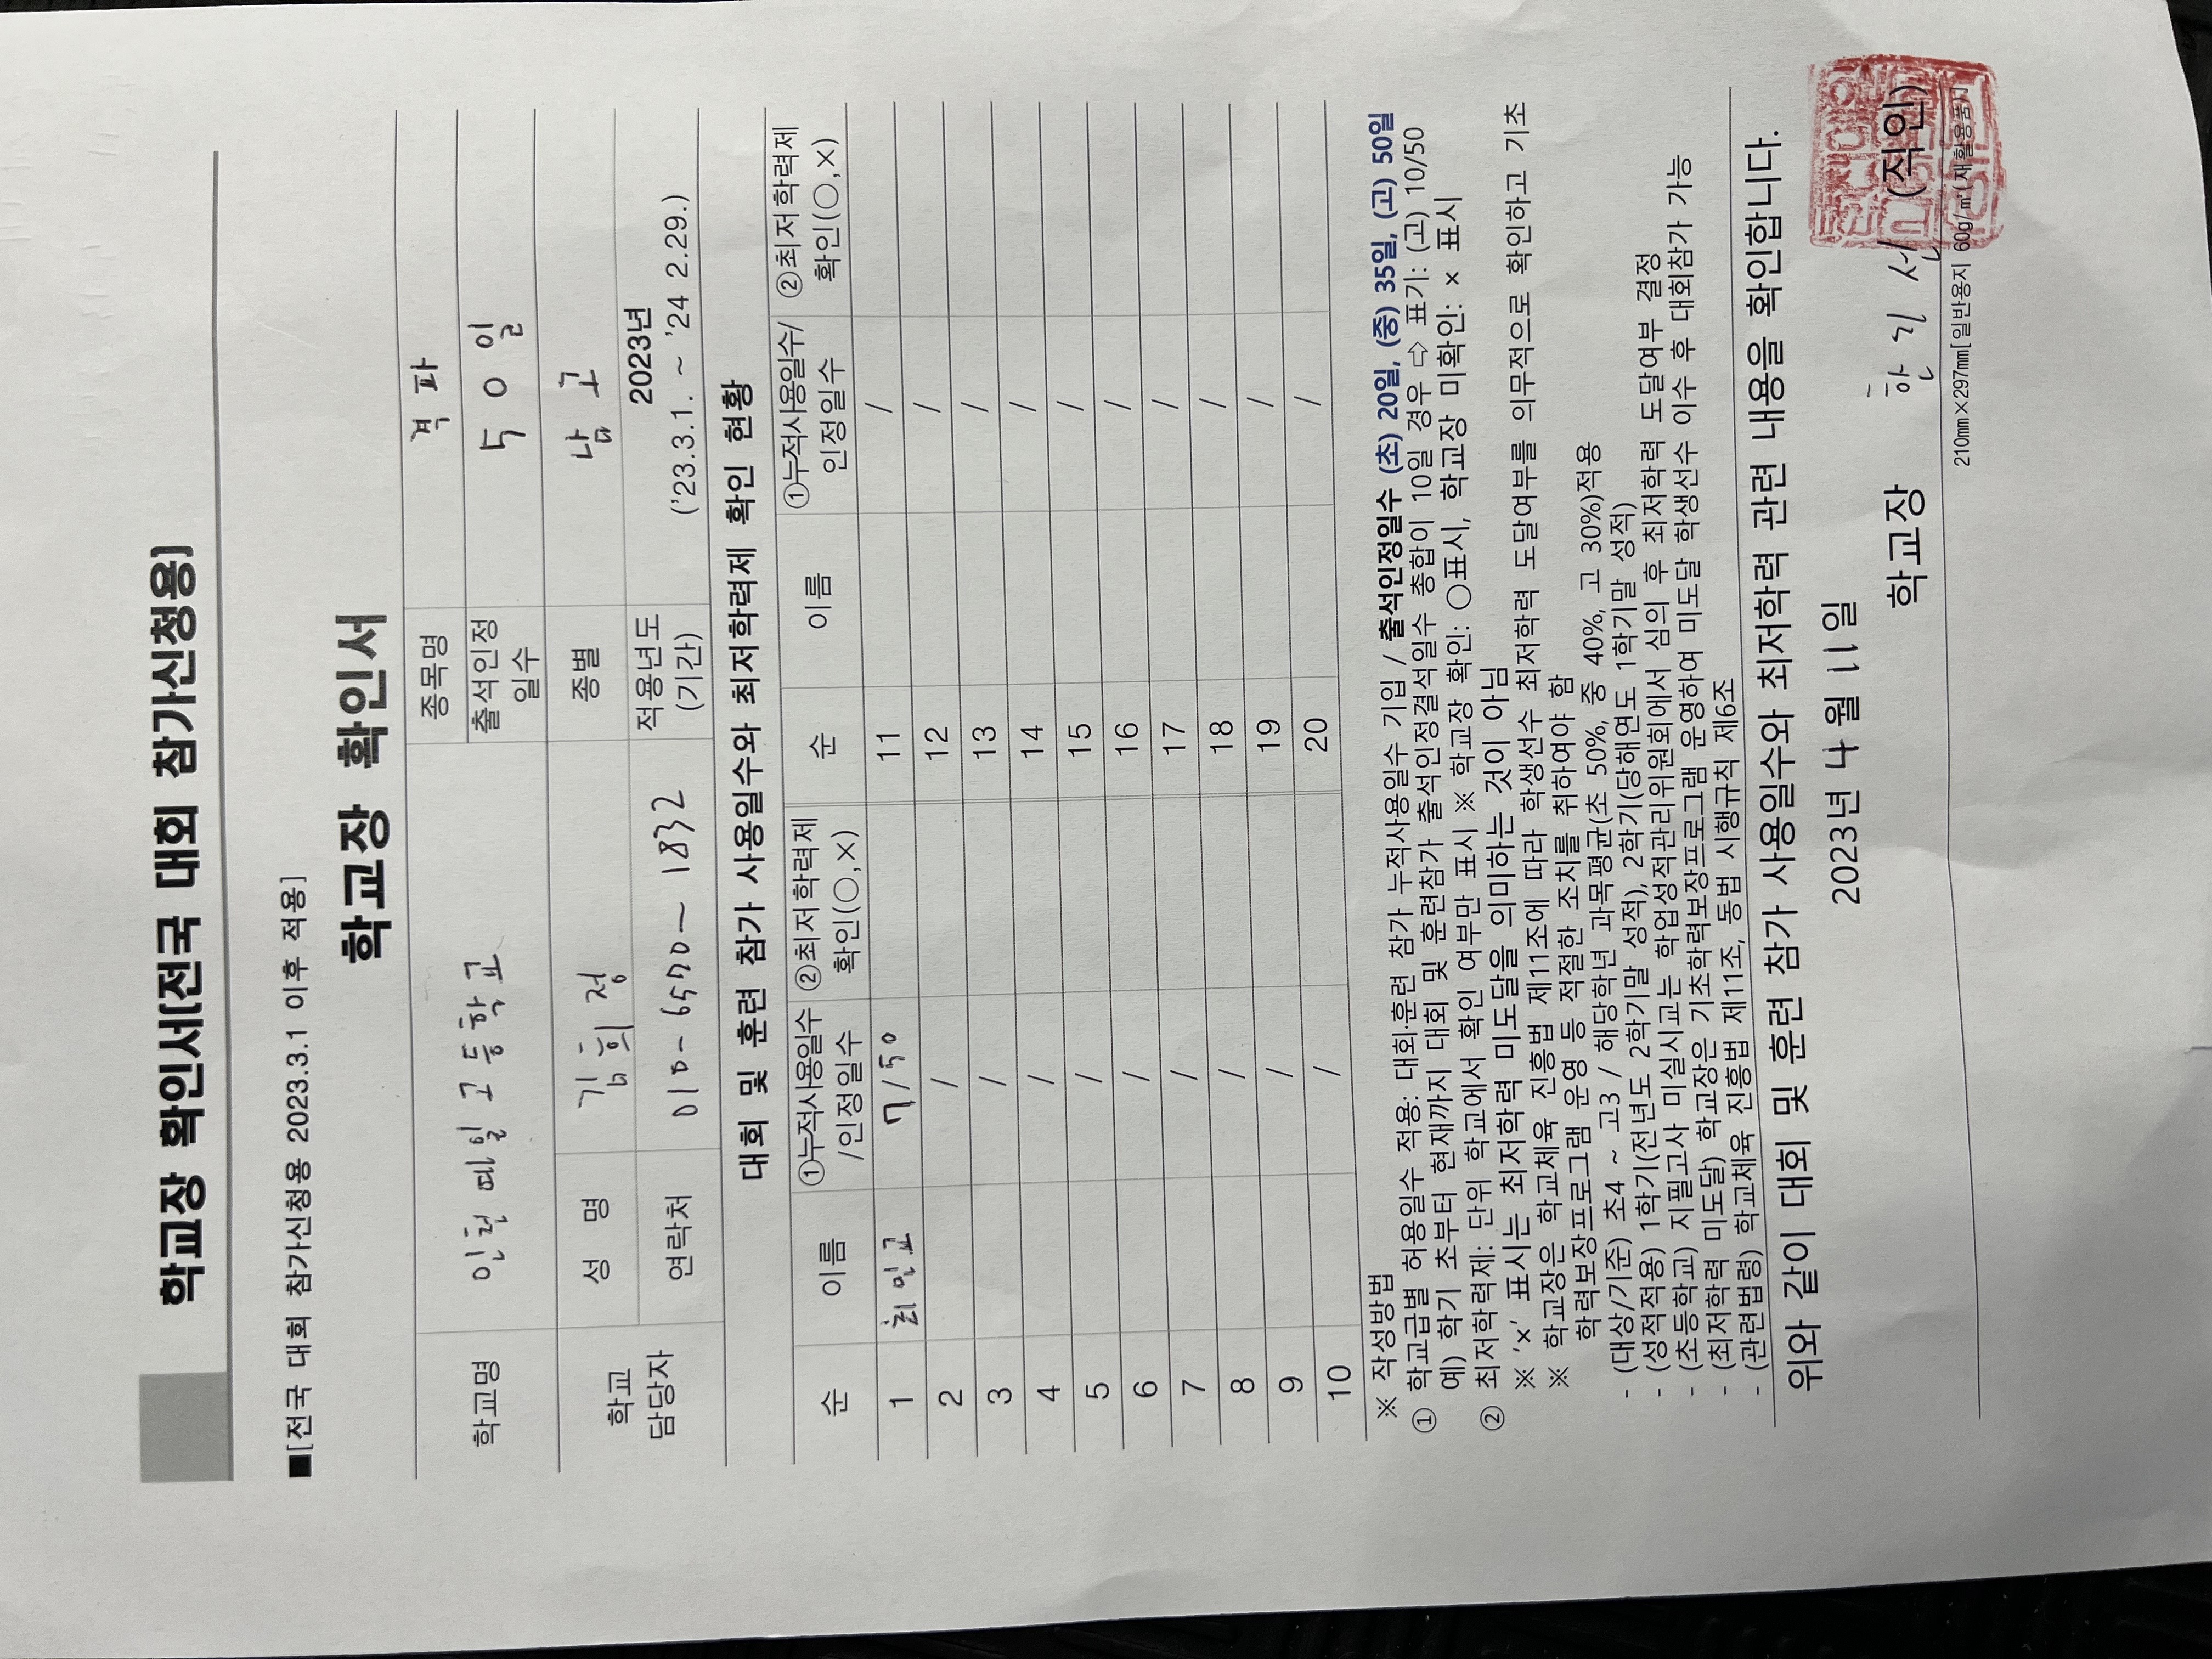 학교장 확인서(전국 대회 참가신청용)
■[전국 대회 참가신청용 2023.3.1 이후 적용]
학교장 확인서
학교명 인천예일고등학교 종목명 격파
출석인정 일수 50일
학교 담당자 성 명 김희정 종별 남고
연락처 010-6570-1832 적용년도 (기간) 2023년 ('23.3.1. ~ '24 2.29.)
대회 및 훈련 참가 사용일수와 최저학력제 확인 현황
순 이름 ①누적사용일수 /인정일수 ②최저학력제 확인(○,×) 순 이름 ①누적사용일수/ 인정일수 ②최저학력제 확인(○,×)
1 최민교 7/50 11 /
2 / 12 /
3 / 13 /
4 / 14 /
5 / 15 /
6 / 16 /
7 / 17 /
8 / 18 /
9 / 19 /
10 / 20 /
※ 작성방법
① 학교급별 허용일수 적용: 대회·훈련 참가 누적사용일수 기입 / 출석인정일수 (초) 20일, (중) 35일, (고) 50일
예) 학기 초부터 현재까지 대회 및 훈련참가 출석인정결석일수 총합이 10일 경우 ⇨ 표기: (고) 10/50
② 최저학력제: 단위 학교에서 확인 여부만 표시 ※ 학교장 확인: ○표시, 학교장 미확인: × 표시
※ '×' 표시는 최저학력 미도달을 의미하는 것이 아님
※ 학교장은 학교체육 진흥법 제11조에 따라 학생선수 최저학력 도달여부를 의무적으로 확인하고 기초
학력보장프로그램 운영 등 적절한 조치를 취하여야 함
- (대상/기준) 초4 ~ 고3 / 해당학년 과목평균(초 50%, 중 40%, 고 30%)적용
- (성적적용) 1학기(전년도 2학기말 성적), 2학기(당해연도 1학기말 성적)
- (초등학교) 지필고사 미실시교는 학업성적관리위원회에서 심의 후 최저학력 도달여부 결정
- (최저학력 미도달) 학교장은 기초학력보장프로그램 운영하여 미도달 학생선수 이수 후 대회참가 가능
- (관련법령) 학교체육 진흥법 제11조, 동법 시행규칙 제6조
위와 같이 대회 및 훈련 참가 사용일수와 최저학력 관련 내용을 확인합니다.
2023년 4월 11일
학교장 한기선 (직인)
210mm×297mm[일반용지 60g/㎡(재활용품)]